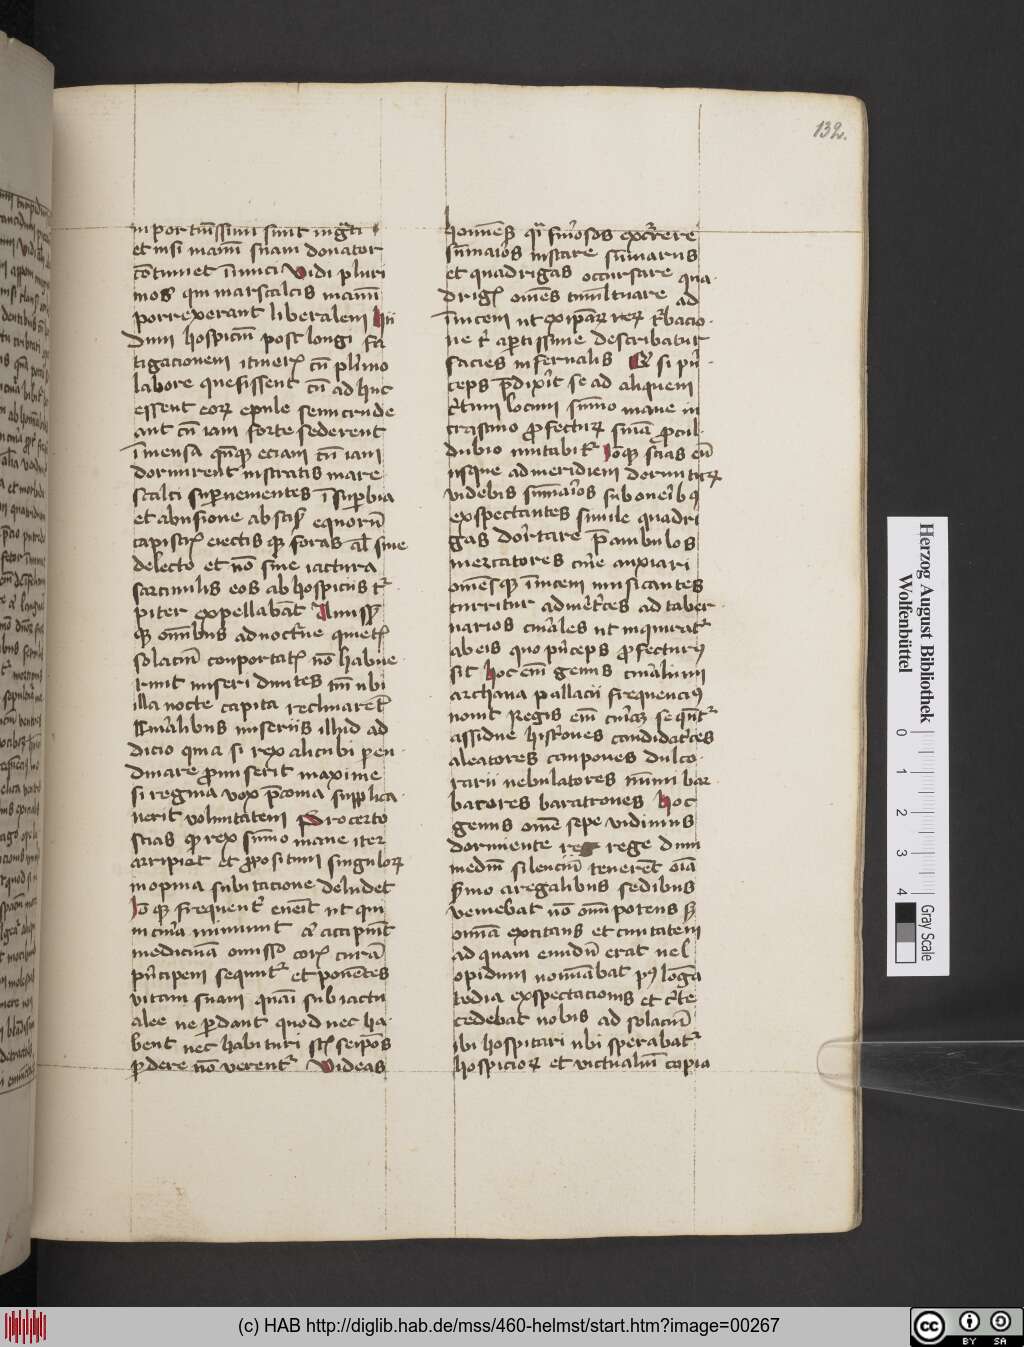 132.
inportunissimi sunt ingrati
et nisi manum suam donator
continuet inimici Vidi pluri
mos qui marscalcis manum
porrexerant liberalem hii
dum hospicium post longi fa
tigacionem itineris cum plurimo
labore quesissent cum adhuc
essent eorum epule semicrude
aut cum iam forte sederent
in mensa quandoque eciam cum iam
dormirent in stratis mare
scalci supervenientes in superbia
et abusione abscisis equorum
capistris eiectisque foras absque
delecto et non sine iactura
sarcinulis eos ab hospiciis tur
piter expellabant
que omnibus ad nocturne quietis
solacium conportatis non habue
runt miseri divites tamen ubi
illa nocte capita reclinarent
Curialibus miseriis illud ad
dicio quia si rex alicubi peren
dinare promiserit maxime
si regina vox preconia supplica
verit voluntatem Pro certo
scias quod rex summo mane iter
arripiet et propositum singulorum
inopina subitacione deludet
Ideoque frequenter evenit ut qui
medicinam omisso corporis curam
principem sequuntur et ponentes
vitam suam quasi sub iactu
alee ne perdant quod nec ha
bent nec habituri sunt seipsos
perdere non verentur Videas
homines quasi furiosos excurrere
summarios instare summariis
et quadrigas occursare qua
drigis omnes tumultuare ad
invicem ut ex ipsarum rerum turbacio
ne et apertissime describatur
facies infernalis Quod si prin
ceps predixerit se ad aliquem
certum locum summo mane in
crastino profecturum suum procul
dubio mutabitur Ideoque scias eum
usque ad meridiem dormiturum
videbis summarios sub oneribus
exspectantes simile quadri
gas dormitare preambulos
mercatores curie anxiari
omnesque invicem musicantes
curritur ad meretrices ad taber
narios curiales ut inquiratur
ab eis quo princeps profecturus
sit hoc enim genus curialium
archana pallacii frequencius
novit Regis enim curiam sequntur
assidue histriones candidatrices
aleatores caupones dulco
rarii nebulatores mimi bar
batores baratrones hoc
genus omne sepe vidimus
dormiente rege dum
medium silencium tenerent omnia
sermo a regalibus sedibus
veniebat non omnipotens sed
omnia excitans et civitatem
ad quam eundum erat vel
opidum nominabat post longa
tedia exspectacionis et certe
cedebat nobis ad solacium
ibi hospitari ubi sperabatur
hospiciorum et victualium copia
Herzog August Bibliothek
Wolfenbüttel
0 1 2 3 4
Gray Scale
(c) HAB http://diglib.hab.de/mss/460-helmst/start.htm?image=00267
cc BY SA